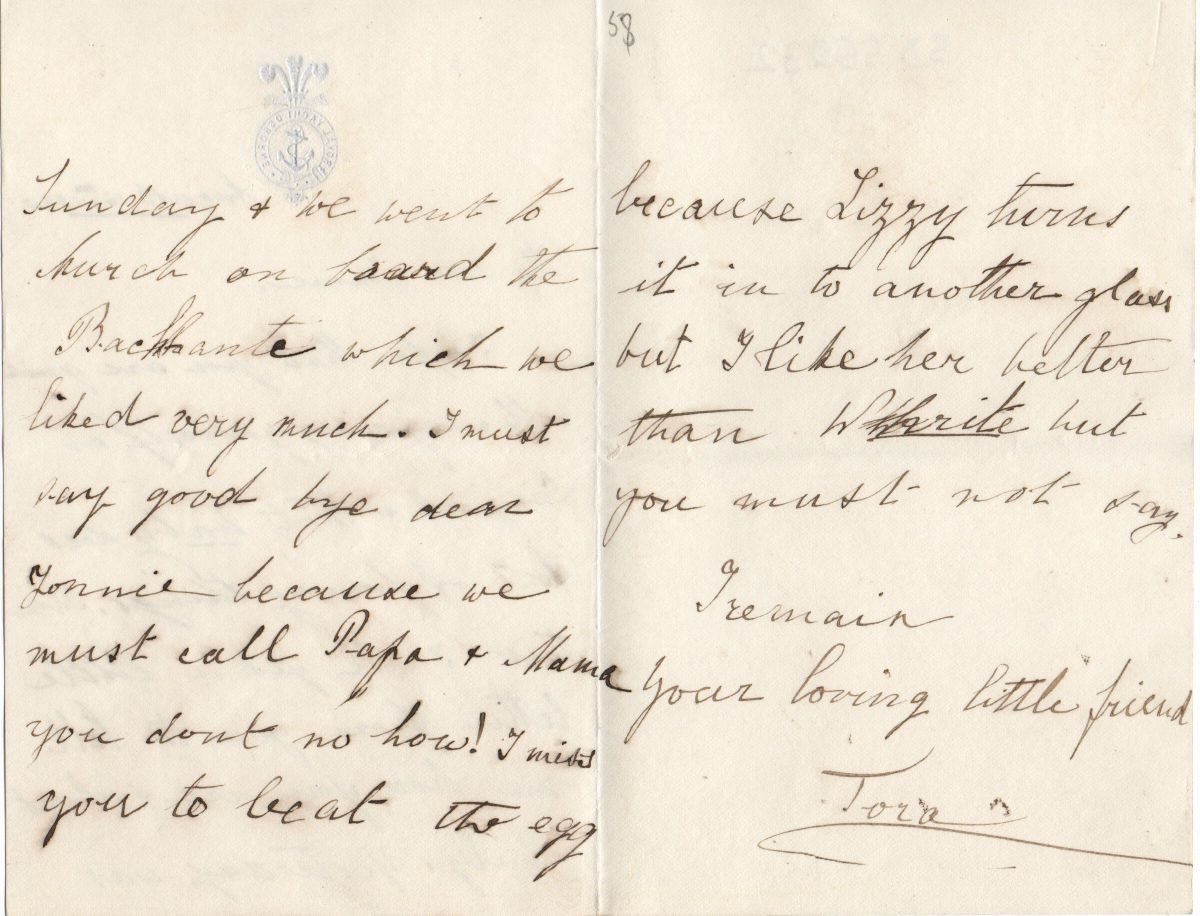 58
Sunday & we went to
church on board the
Bacchante which we
liked very much. I must
say good bye dear
Jonnie because we
must call Papa & Mama
you dont no how! I miss
you to beat the egg
because Lizzy turns
it in to another glass
but I like her better
than but
you must not say.
I remain
Your loving little friend
Tora